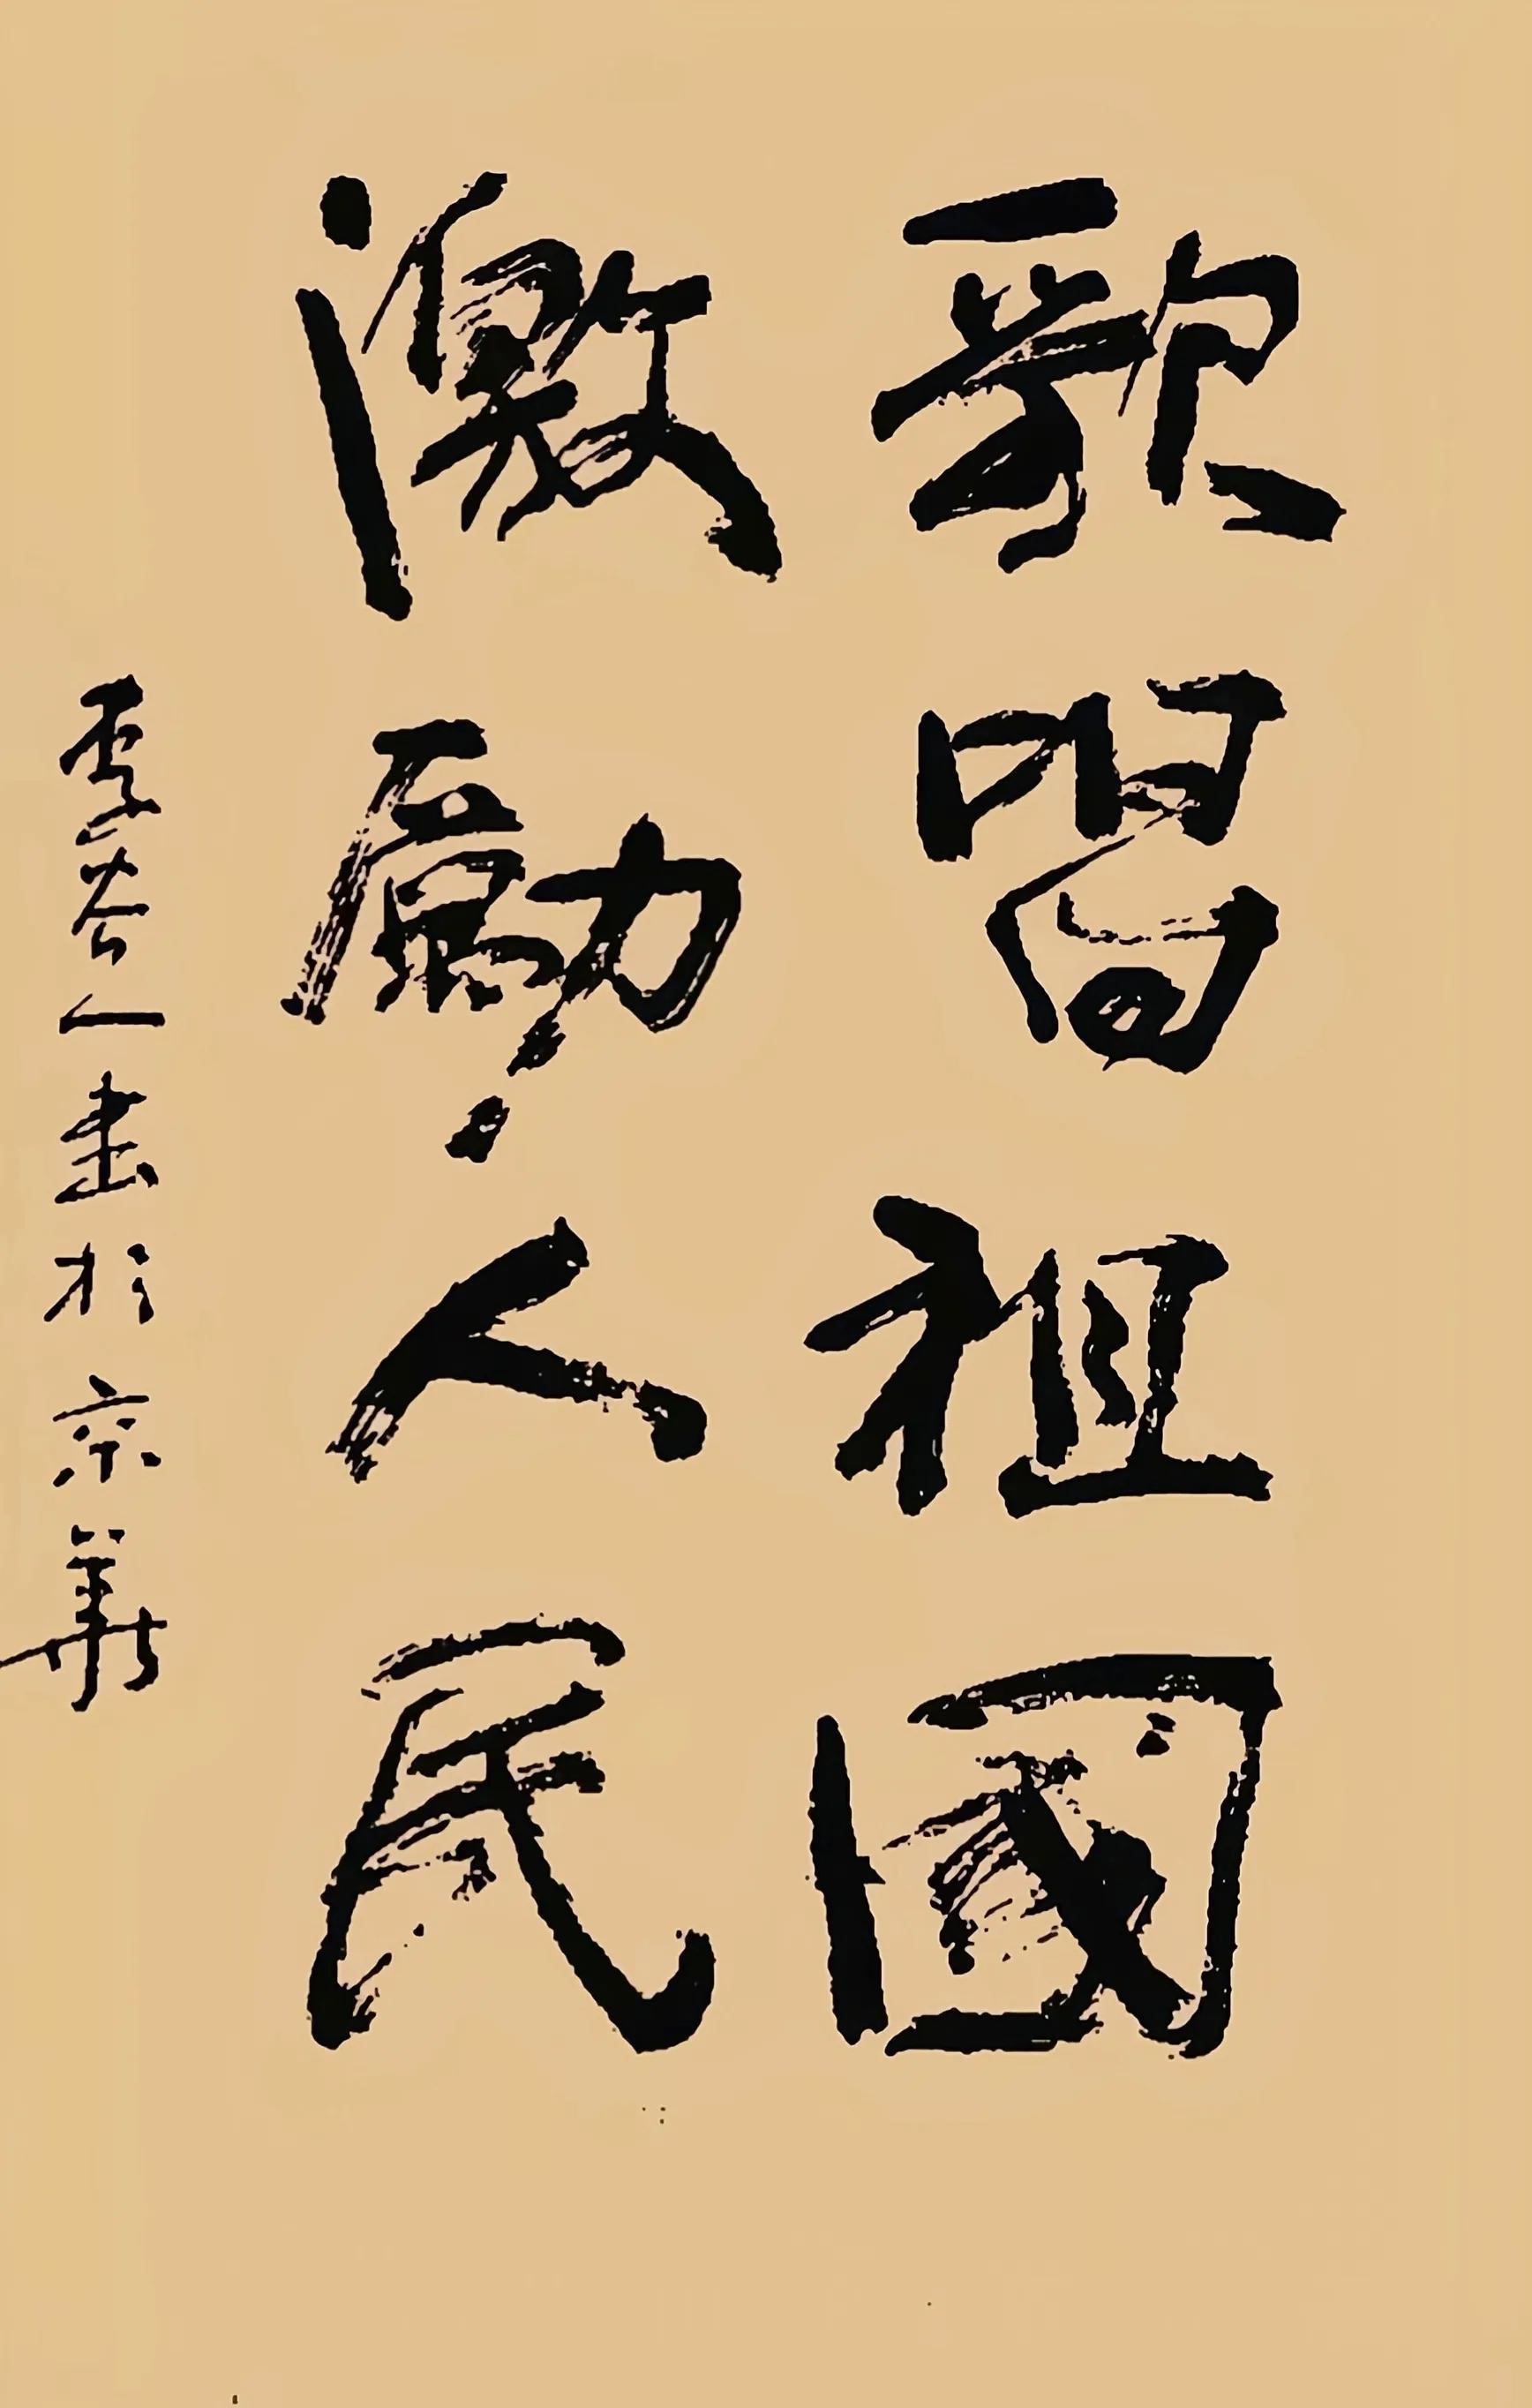 歌唱祖國
激勵人民
李谷一書於京華